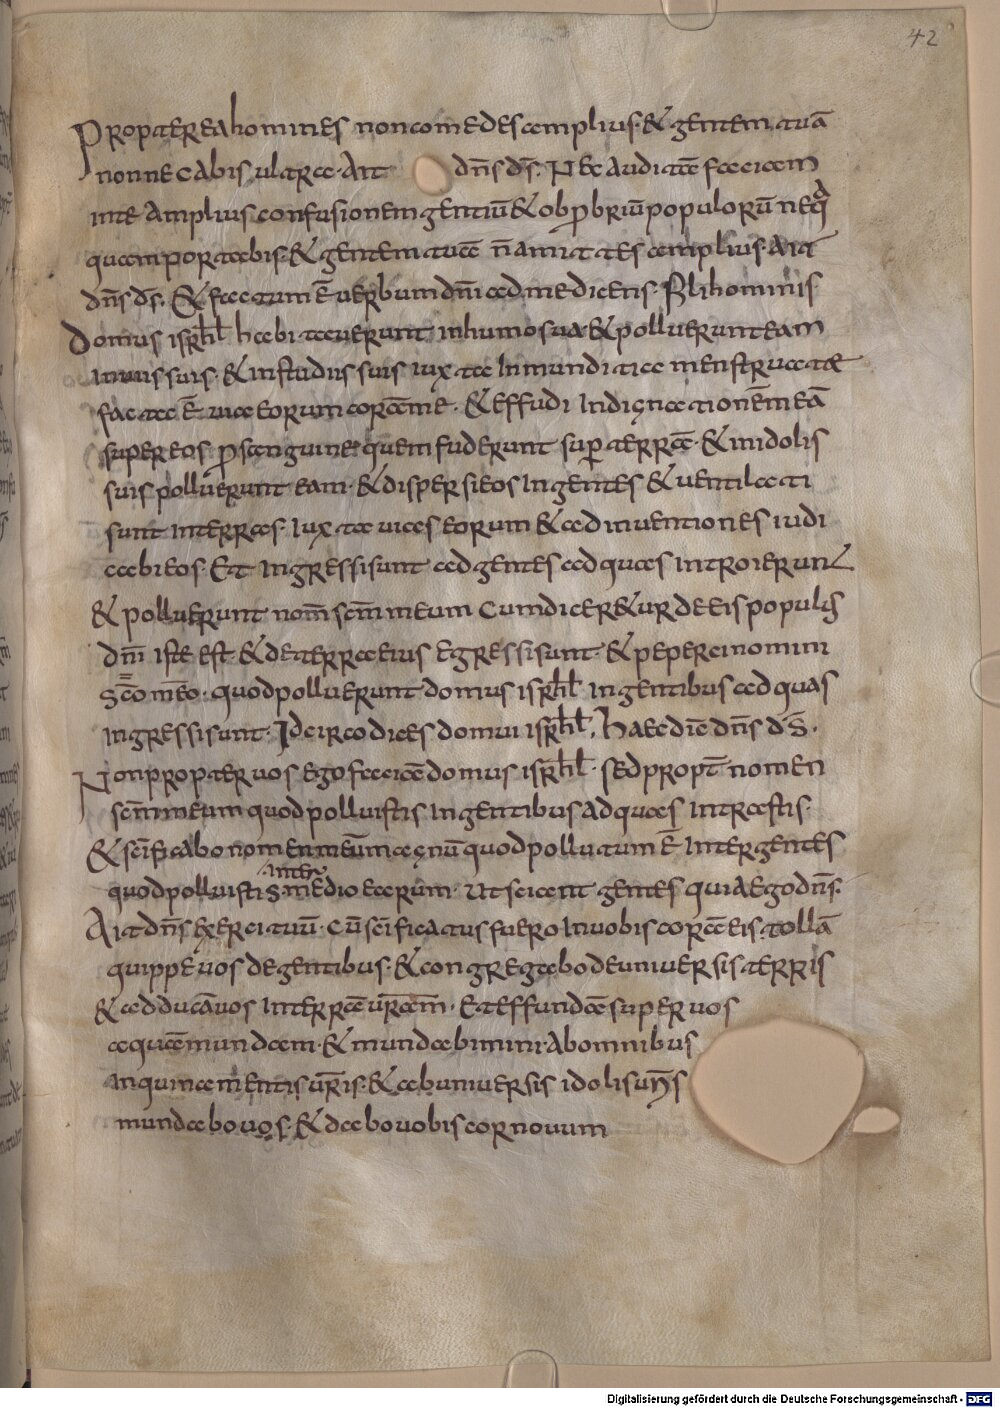 42
Propterea homines non comedes amplius. & gentem tuā
non necabis ultra. Ait dn̄s ds̄. Nec auditā faciam
in te amplius confusionem gentiū & obprbriū populorū neq̄
quam portabis. & gentem tuā n̄ amittes amplius. Ait
dn̄s ds̄. Et factum ē uerbum dn̄i ad me dicens. Fili hominis
Domus isrl̄ habitauerunt in humo sua & polluerunt eam
in uiis suis. & in studiis suis iuxta Inmunditia menstruatæ
facta ē uia eorum corā me. & effudi Indignationēm eā
super eos. p sanguine quem fuderunt sup terrā. & in idolis
suis polluerunt eam. & dispersi eos In gentes & uentilati
sunt In terras. Iuxta uias eorum & ad inuentiones iudi
caabi eos. Et Ingressi sunt ad gentes ad quas Introierunt
& polluerunt nom̄ scm̄ meum Cum dicer&ur de eis populus
dnī iste est. & de terra eius Egressi sunt. & peperci nomini
Sc̄o mēo. quod polluerunt domus isrl̄ In gentibus ad quas
Ingressi sunt. Idcirco dices domui isrl̄. Haec diē dn̄s ds̄.
Non propter uos Ego faciā domus isrl̄. sed propt̄ nomen
scm̄ meum quod polluistis In gentibus ad quas Intrastis.
& sc̄ificabo nomen mēum magnū quod pollutum ē Inter gentes
inter
quod polluistis mēdio eorum. Ut sciant gentes quia Ego dn̄s.
Ait dn̄s exercituū. Cū sc̄ificatus fuero In uobis corā eis. tollā
quippe uos de gentibus. & congregabo de uniuersis terris
& adducā uos In terrā ur̄am. Et effundā super uos
aquā mundam. & mundabimini. Ab omnibus
inquinamentis ur̄is. & ab uniuersis idolis ur̄is
mundabo uos. & dabo uobis cor nouum
Digitalisierung gefördert durch die Deutsche Forschungsgemeinschaft - DFG